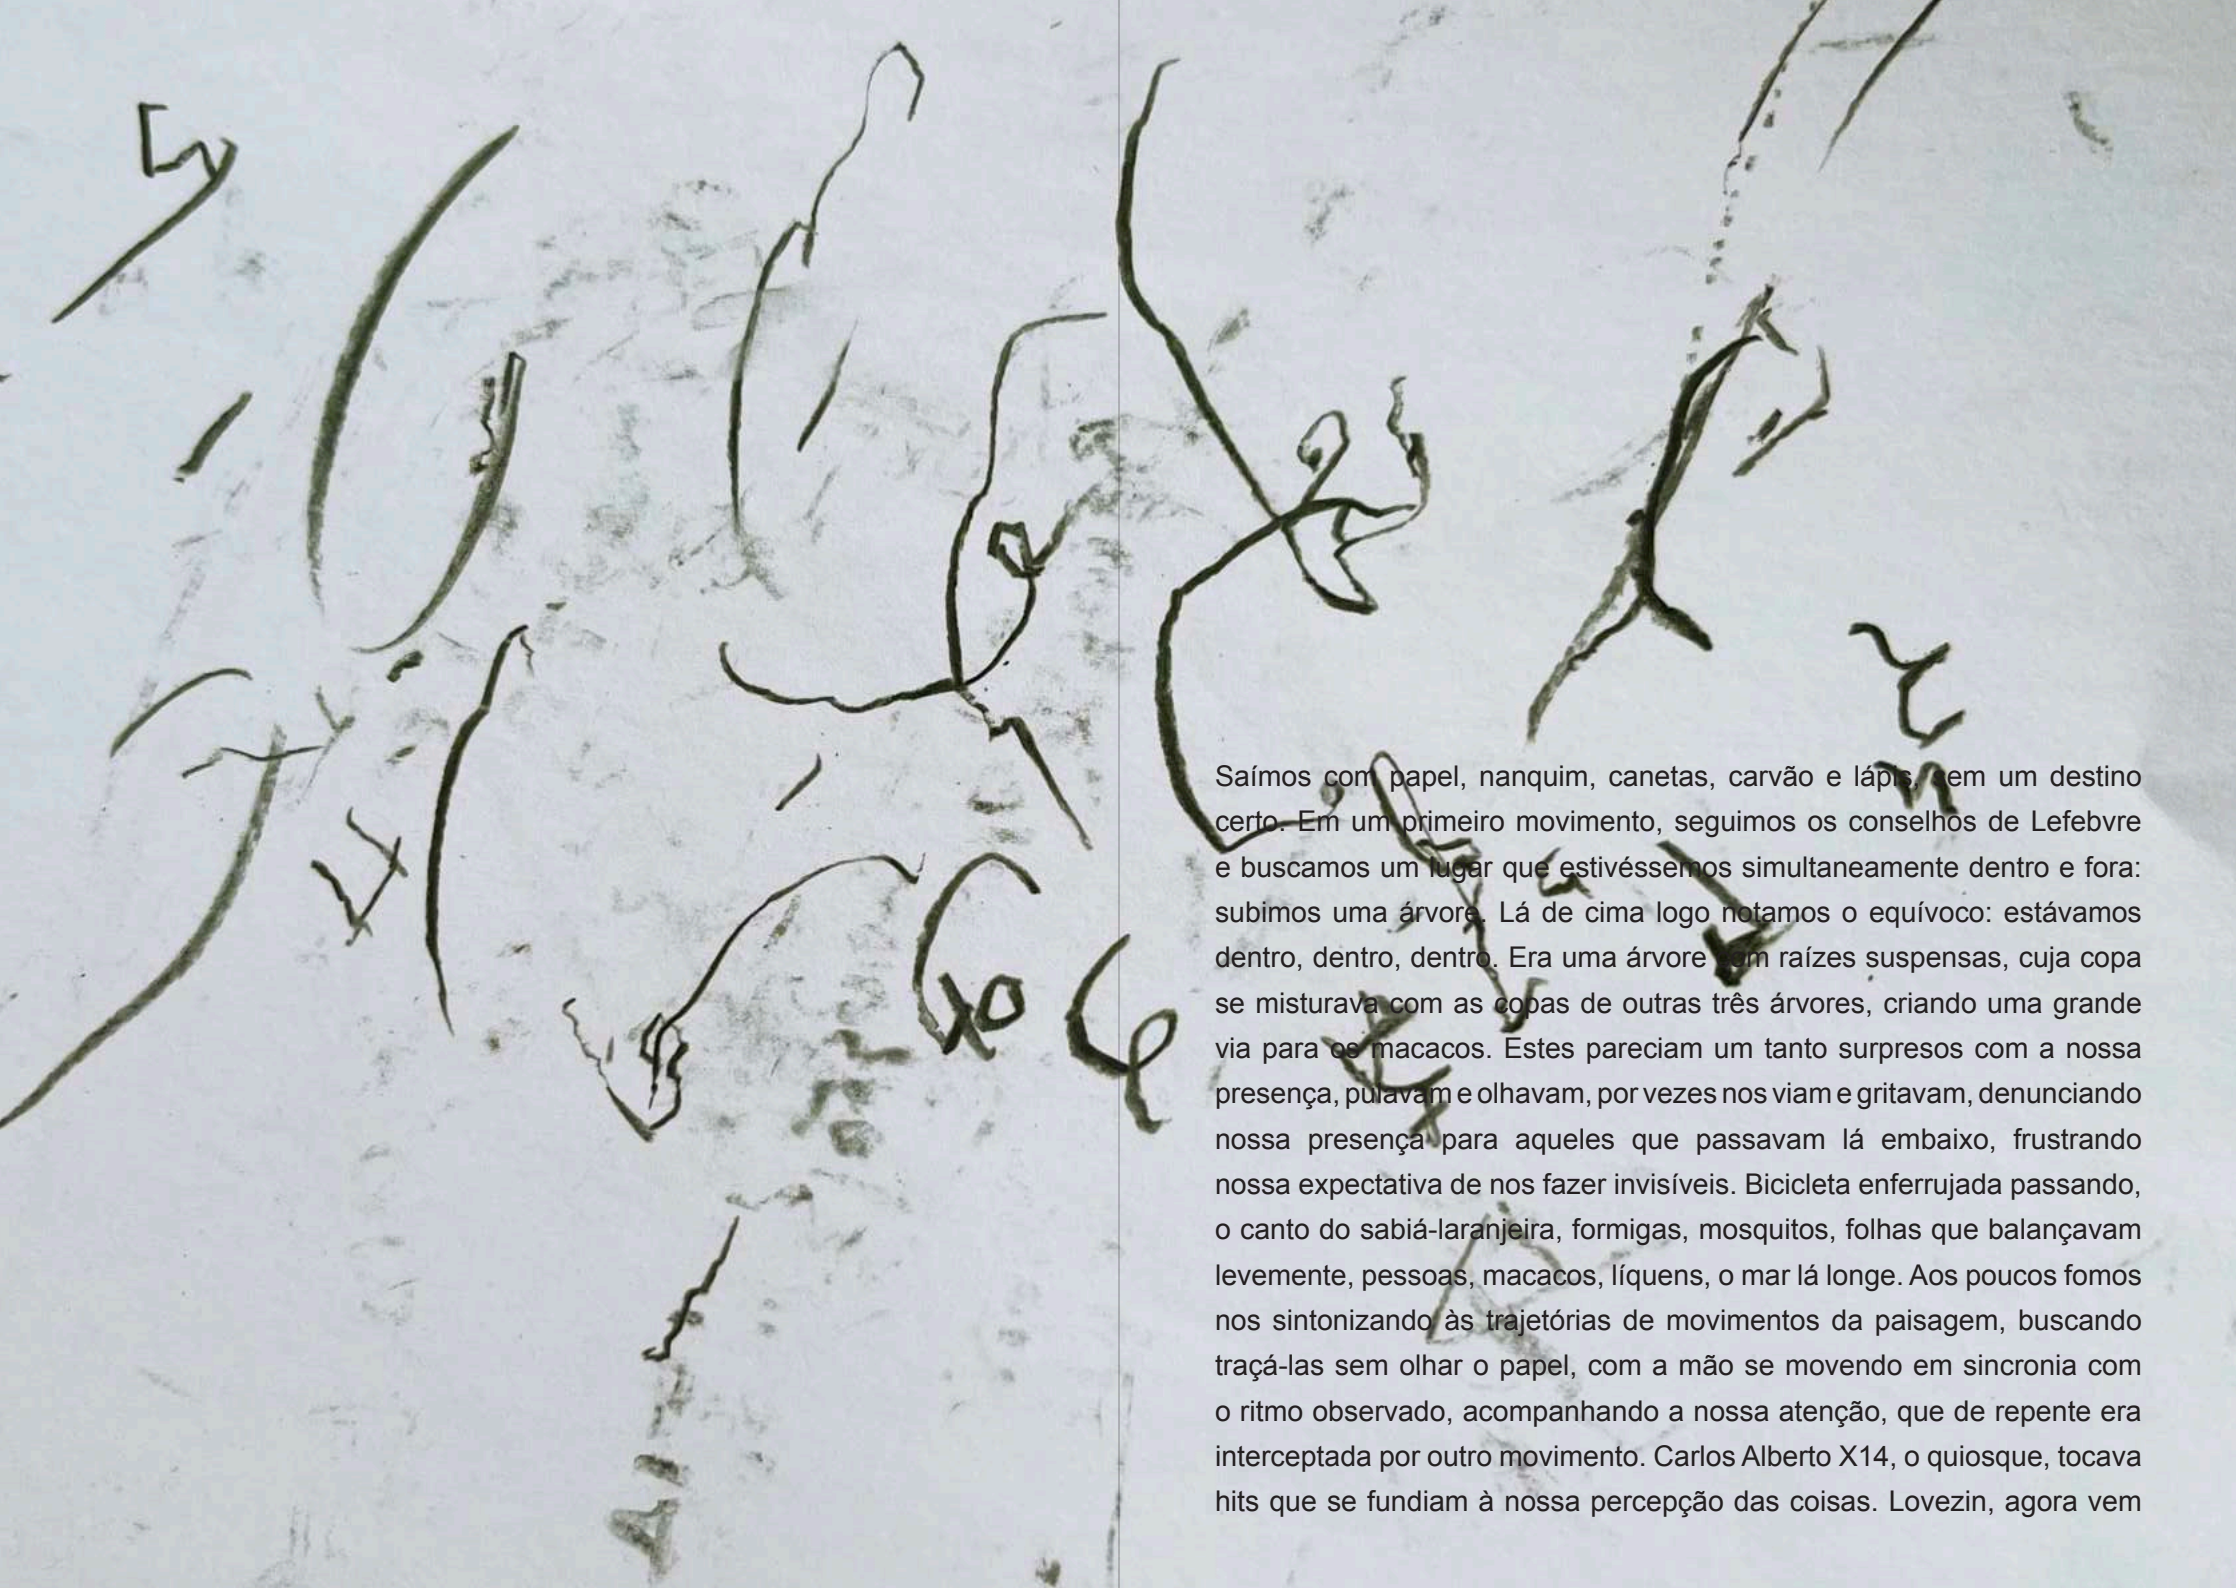 Saímos com papel, nanquim, canetas, carvão e lápis, sem um destino
certo. Em um primeiro movimento, seguimos os conselhos de Lefebvre
e buscamos um lugar que estivéssemos simultaneamente dentro e fora:
subimos uma árvore. Lá de cima logo notamos o equívoco: estávamos
dentro, dentro, dentro. Era uma árvore com raízes suspensas, cuja copa
se misturava com as copas de outras três árvores, criando uma grande
via para os macacos. Estes pareciam um tanto surpresos com a nossa
presença, pulavam e olhavam, por vezes nos viam e gritavam, denunciando
nossa presença para aqueles que passavam lá embaixo, frustrando
nossa expectativa de nos fazer invisíveis. Bicicleta enferrujada passando,
o canto do sabiá-laranjeira, formigas, mosquitos, folhas que balançavam
levemente, pessoas, macacos, líquens, o mar lá longe. Aos poucos fomos
nos sintonizando às trajetórias de movimentos da paisagem, buscando
traçá-las sem olhar o papel, com a mão se movendo em sincronia com
o ritmo observado, acompanhando a nossa atenção, que de repente era
interceptada por outro movimento. Carlos Alberto X14, o quiosque, tocava
hits que se fundiam à nossa percepção das coisas. Lovezin, agora vem